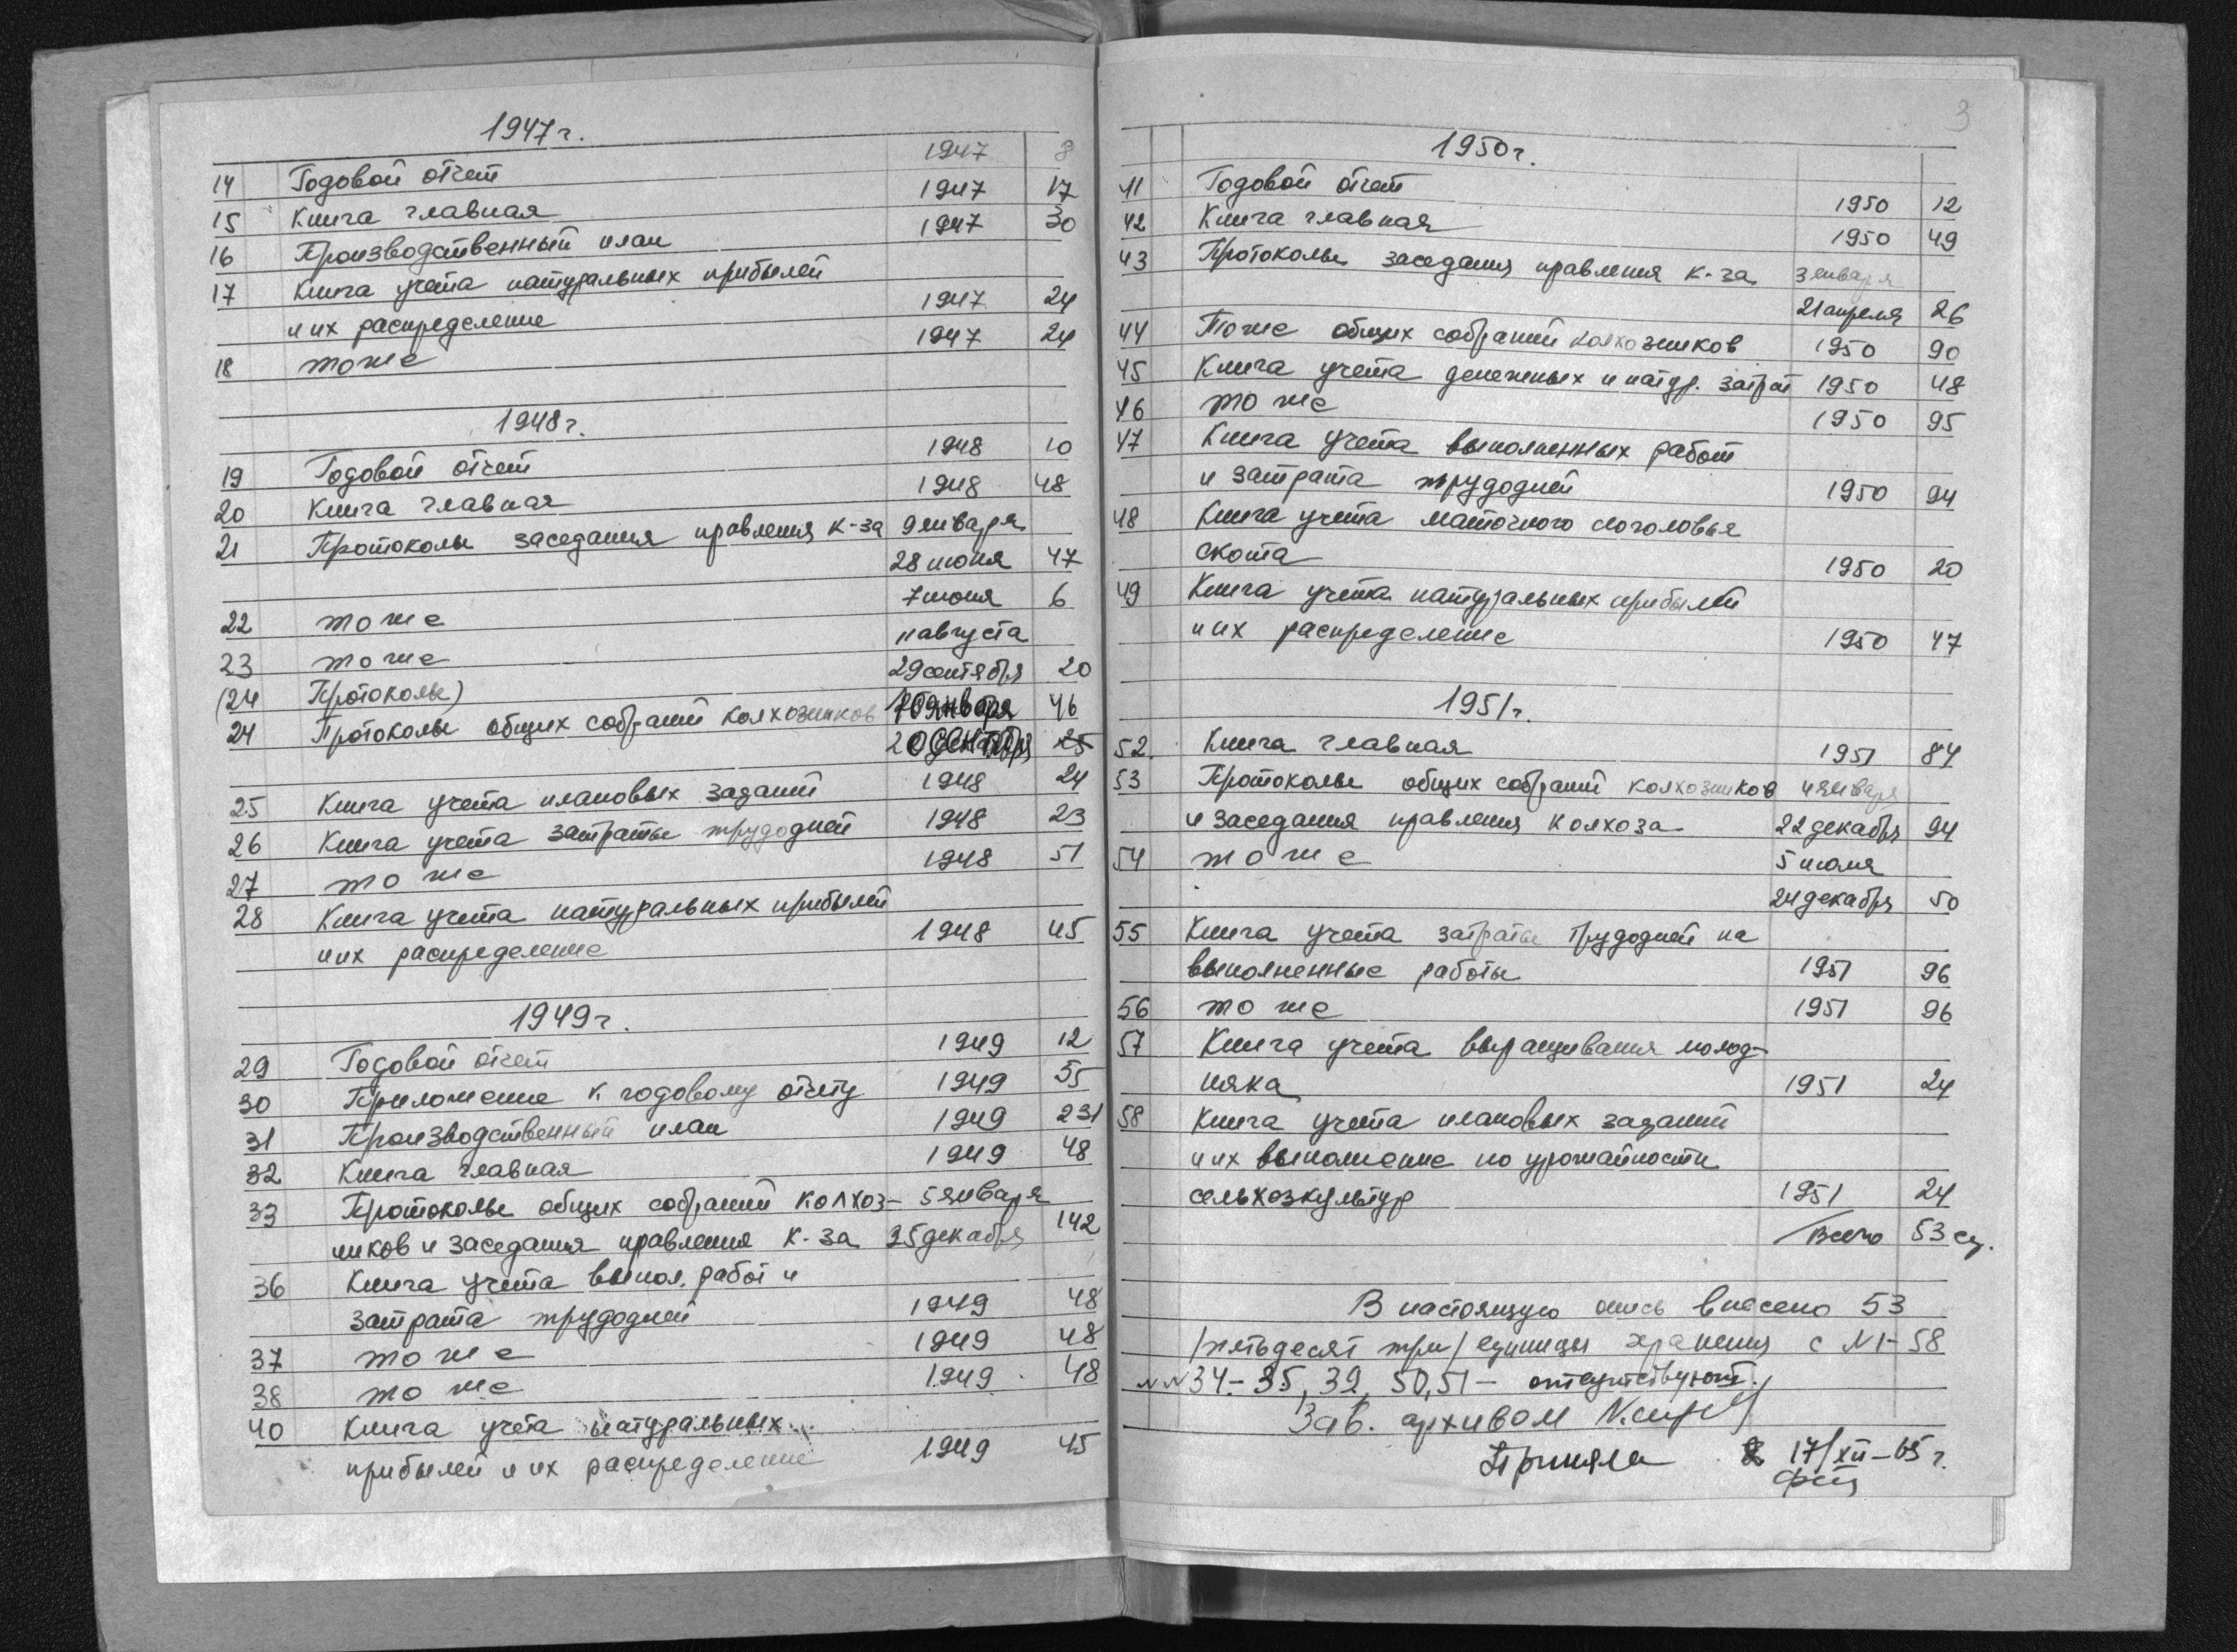 1947 г.
14 Годовой отчет 1947 8
15 Книга главная 1947 17
16 Производственный план 1947 30
17 Книга учета натуральных прибылей
и их распределение 1947 24
18 то же 1947 24
1948 г.
19 Годовой отчет 1948 10
20 Книга главная 1948 48
21 Протоколы заседания правления к-за 9 января
28 июня 47
22 то же 7 июня 6
23 то же 11 августа
29 сентября 20
(24 Протоколы)
24 Протоколы общих собраний колхозников января 46
20 25
25 Книга учета плановых заданий 1948 24
26 Книга учета затраты трудодней 1948 23
27 то же 1948 51
28 Книга учета натуральных прибылей
и их распределение 1948 45
1949 г.
29 Годовой отчет 1949 12
30 Приложение к годовому отчету 1949 55
31 Производственный план 1949 231
32 Книга главная 1949 48
33 Протоколы общих собраний колхоз- 5 января
ников и заседания правления к-за 25 декабря 142
36 Книга учета выпол. работ и
затрата трудодней 1949 48
37 то же 1949 48
38 то же 1949 48
40 Книга учета натуральных
прибылей и их распределение 1949 45
3
1950 г.
41 Годовой отчет 1950 12
42 Книга главная 1950 49
43 Протоколы заседания правления к-за 3 января
21 апреля 26
44 То же общих собраний колхозников 1950 90
45 Книга учета денежных и натур. затрат 1950 48
46 то же 1950 95
47 Книга учета выполненных работ
и затрата трудодней 1950 94
48 Книга учета маточного поголовья
скота 1950 20
49 Книга учета натуральных прибылей
и их распределение 1950 47
1951 г.
52. Книга главная 1951 84
53 Протоколы общих собраний колхозников 4 января
и заседания правления колхоза 22 декабря 94
54 то же 5 июля
24 декабря 50
55 Книга учета затраты трудодней на
выполненные работы 1951 96
56 то же 1951 96
57 Книга учета выращивания молод-
няка 1951 24
58 Книга учета плановых заданий
и их выполнение по урожайности
сельхозкультур 1951 24
Всего 53 ед.
В настоящую опись внесено 53
/пятьдесят три/ единицы хранения с №1-58
№№ 34-35, 39, 50, 51 - отсутствуют.
Зав. архивом
Приняла 17/XII-65 г.